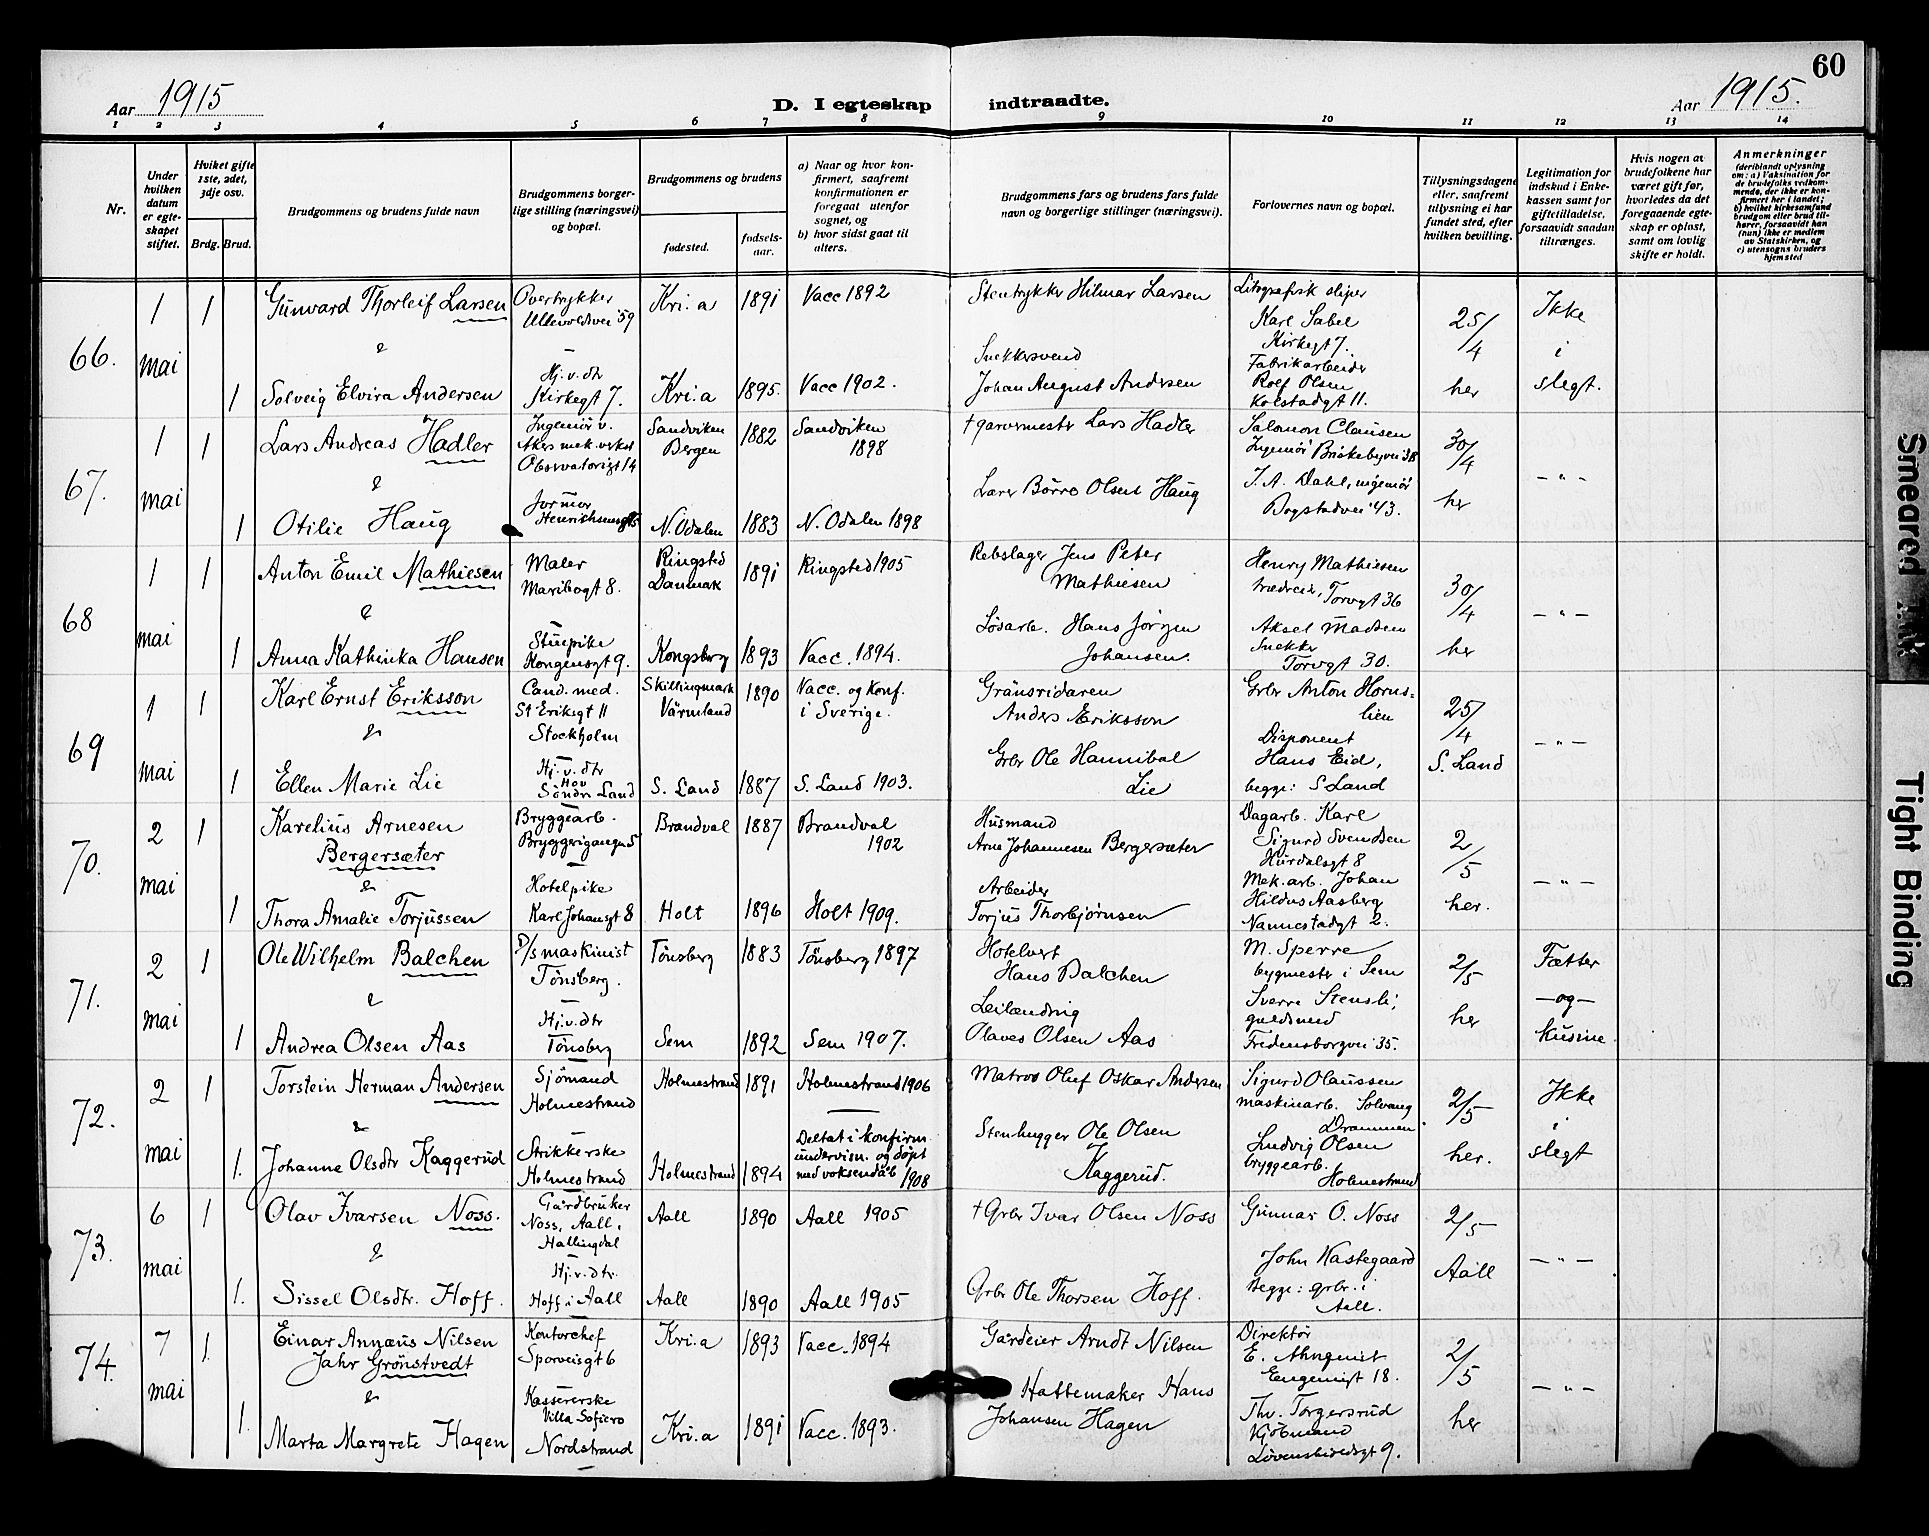 60
Aar 1915
D. I egteskap indtraadte.
Aar 1915.
1 2 3 4 5 6 7 8 9 10 11 12 13 14
Nr.
Under hvilken datum er egteskapet stiftet.
Hviket gifte 1ste, 2det, 3dje osv.
Brdg. Brud.
Brudgommens og brudens fulde navn
Brudgommens borgerlige stilling (næringsvei) og bopæl.
Brudgommens og brudens
fødested.
fødselsaar.
a) Naar og hvor konfirmert, saafremt konfirmationen er foregaat utenfor sognet, og
b) hvor sidst gaat til alters.
Brudgommens fars og brudens fars fulde navn og borgerlige stillinger (næringsvei).
Forlovernes navn og bopæl.
Tillysningsdagene eller, saafremt tillysning ei har fundet sted, efter hvilken bevilling.
Legitimation for indskud i Enkekassen samt for giftetilladelse, forsaavidt saadan tiltrænges.
Hvis nogen av brudefolkene har været gift før, hvorledes da det foregaaende egteskap er opløst, samt om lovlig skifte er holdt.
Anmerkninger
(deriblandt oplysning om: a) Vaksination for de brudefolks vedkommende, der ikke er konfirmert her i landet; b) hvilket kirkesamfund brudgom eller brud tilhører, forsaavidt han (hun) ikke er medlem av Statskirken, og c) utensogns bruders hjemsted
66.
1 Mai
1
Gunvard Thorleif Larsen
Overtrykker
Ullevoldsvei 59
Kri.a
1891
Vacc 1892
Stentrykker Hilmar Larsen
Litografisk sliper
Karl Sabel
Kirkegt 7.
25/4
her
Ikke
i
slegt.
&
1
Solveig Elvira Andersen
Hj.v.dtr
Kirkegt 7.
Kri.a
1895.
Vacc 1902.
Snekkersvend
Johan August Andersen
Fabrikarbeider
Rolf Olsen
Kolstadgt 11.
67.
1 Mai
1
Lars Andreas Hadler
Ingeniör v.
Akers mek. verkst
Observatoriegt 14
Sandviken
Bergen
1882
Sandviken
1898
† garvermester Lars Hadler
Salomon Clausen
Ingeniör Briskebyvei 38
30/4
her
— " —
&
1
Otilie Haug
Jormor
Henrichsensgt 5
N. Odalen
1883
N. Odalen 1898
Lærer Börre Olsen Haug
J. A. Dahl, ingeniör
Bogstadvei 43.
68
1 Mai
1
Anton Emil Mathiesen
Maler
Maribogt 8.
Ringsted
Danmark
1891
Ringsted 1905
Rebslager Jens Peter
Mathiesen
Henry Mathiesen
Torvgt 36
30/4
her
— " —
&
1
Anna Kathinka Hansen
Stuepike
Kongensgt 9.
Kongsberg
1893
Vacc. 1894.
Løsarb. Hans Jørgen
Johansen.
Aksel Madsen
Snekker
Torvgt 30.
69
1 Mai
1
Karl Ernst Eriksson
Cand. med.
St Eriksgt 11
Stockholm
Skillingmark
Värmland
1890
Vacc. og Konf.
i Sverige.
Gränsridaren
Anders Eriksson
Grbr Anton Horns-
lien
25/4
S. Land
— " —
&
1
Ellen Marie Lie
Hj.v.dtr
Hov
Söndre Land
S. Land
1887
S. Land 1903.
Grbr Ole Hannibal
Lie
Disponent
Hans Eid,
begge: S Land
70.
2 Mai
1
Karelius Arnesen
Bergersæter
Bryggearb.
Bryggerigangen 5
Brandval
1887
Brandval
1902
Husmand
Arne Johannesen Bergersæter
Dagarb. Karl
Sigurd Svendsen
Hurdalsgt 8
2/5
her.
— " —
&
1
Thora Amalie Torjussen
Hotelpike
Karl Johansgt 8
Holt
1896
Holt 1909.
Arbeider
Torjus Thorbjörnsen
Mek. arb. Johan
Hildus Aasberg
Nannestadgt 2.
71.
2 Mai
1
Ole Wilhelm Balchen
D/s maskinist
Tönsberg.
Tönsberg
1883
Tönsberg 1897
Hotelvert
Hans Balchen
M. Sperre
bygmester i Sem
2/5
her
Fætter
—og—
kusine.
&
1
Andrea Olsen Aas
Hj.v.dtr
Tönsberg
Sem
1892
Sem 1907.
Leilændnig
Olaves Olsen Aas
Sverre Stensli
guldsmed
Fredensborgvei 35.
72.
2 Mai
1
Torstein Herman Andersen
Sjömand
Holmestrand
Holmestrand
1891
Holmestrand 1906
Matros Oluf Oskar Andersen
Sigurd Olaussen
maskinarb. Solvang
Drammen.
2/5
her.
Ikke
i
slegt
&
1.
Johanne Olsdtr Kaggerud
Strikkerske
Holmestrand
Holmestrand
1894
Deltat i konfirm.
undervisn. og döpt
med voksendåb
1908
Stenhugger Ole Olsen
Kaggerud.
Ludvig Olsen
bryggearb.
Holmestrand
73.
6 Mai
1
Olav Ivarsen Noss.
Gårdbruker
Noss, Aall,
Hallingdal
Aall
1890
Aall 1905
† Grbr Ivar Olsen Noss
Gunnar O. Noss
2/5
Aall
— " —
&
1.
Sissel Olsdtr. Hoff.
Hj.v.dtr.
Hoff i Aall
Aall
1890
Aall 1905
Grbr Ole Thorsen Hoff.
John Hastegaard
Begge: grbr. i
Aall.
74.
7 Mai
1.
Einar Annæus Nilsen
Jahr Grönstvedt
Kontorchef
Sporveisgt 6
Kri.a
1893
Vacc. 1894
Gårdeier Arndt Nilsen
Direktör
E. Almquist
Eugeniesgt 18.
2/5
her
— " —
&
1.
Marta Margrete Hagen
Kassererske
Villa Sofiero
Nordstrand
Kri.a
1891
Vacc. 1893.
Hattemaker Hans
Johansen Hagen
Thv. Torgersrud
Kjöbmand
Løvenskioldsgt 9.
Smeared Ink
Tight Binding